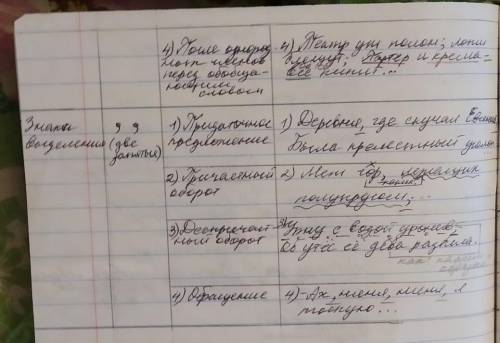 4) После однород
ных членов
перед обобща-
ющим
словом
4) Театр уж полон; ложи
блещут; Партер и кресла –
всё кипит...
Знаки
выделения
, ,
(две
запятые)
1) Придаточное
предложение
1) Деревня, где скучал Евгений
Была прелестный уголок
2) Причастный
оборот
2)
полукругом, ...
3) Деепричаст
ный оборот
3) Урну с водой уронив,
об утёс её дева разбила.
4) Обращение
4) - Ах, няня, няня, я
тоскую...